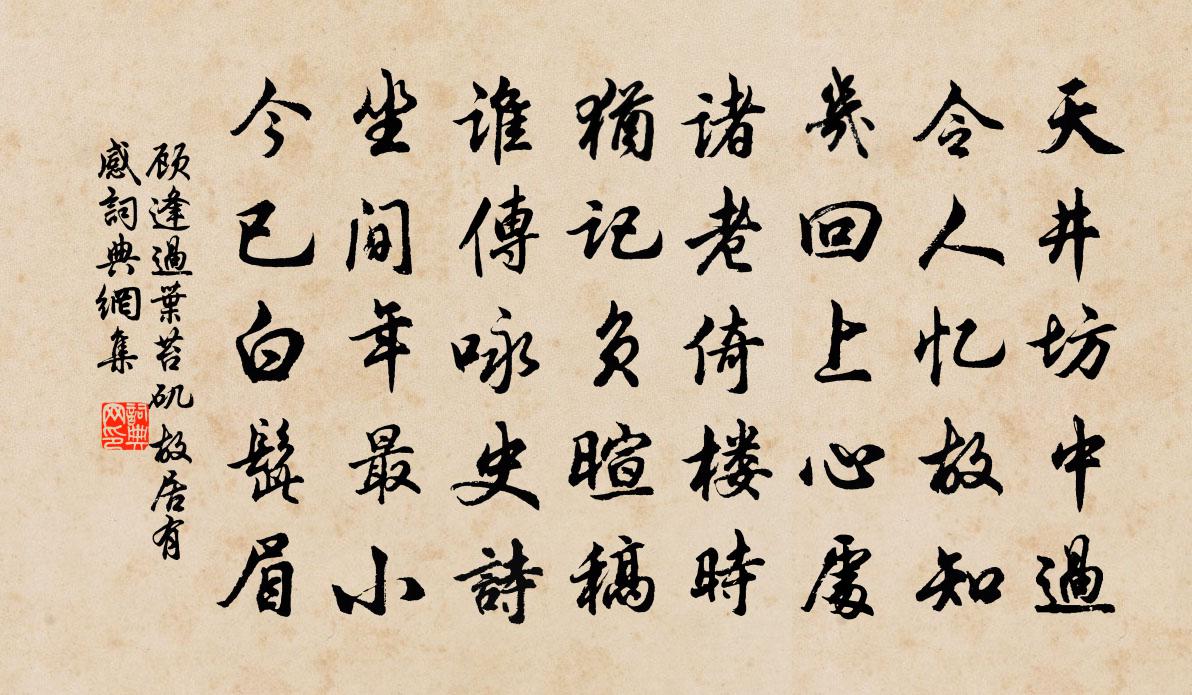 天井坊中過
令人忆故知
幾回上心處
諸老倚楼時
猶记负暄稿
誰傳咏史詩
坐间年最小
今已白髭眉
顾逢過葉苔矶故居有
感詞典網集
詞典网印